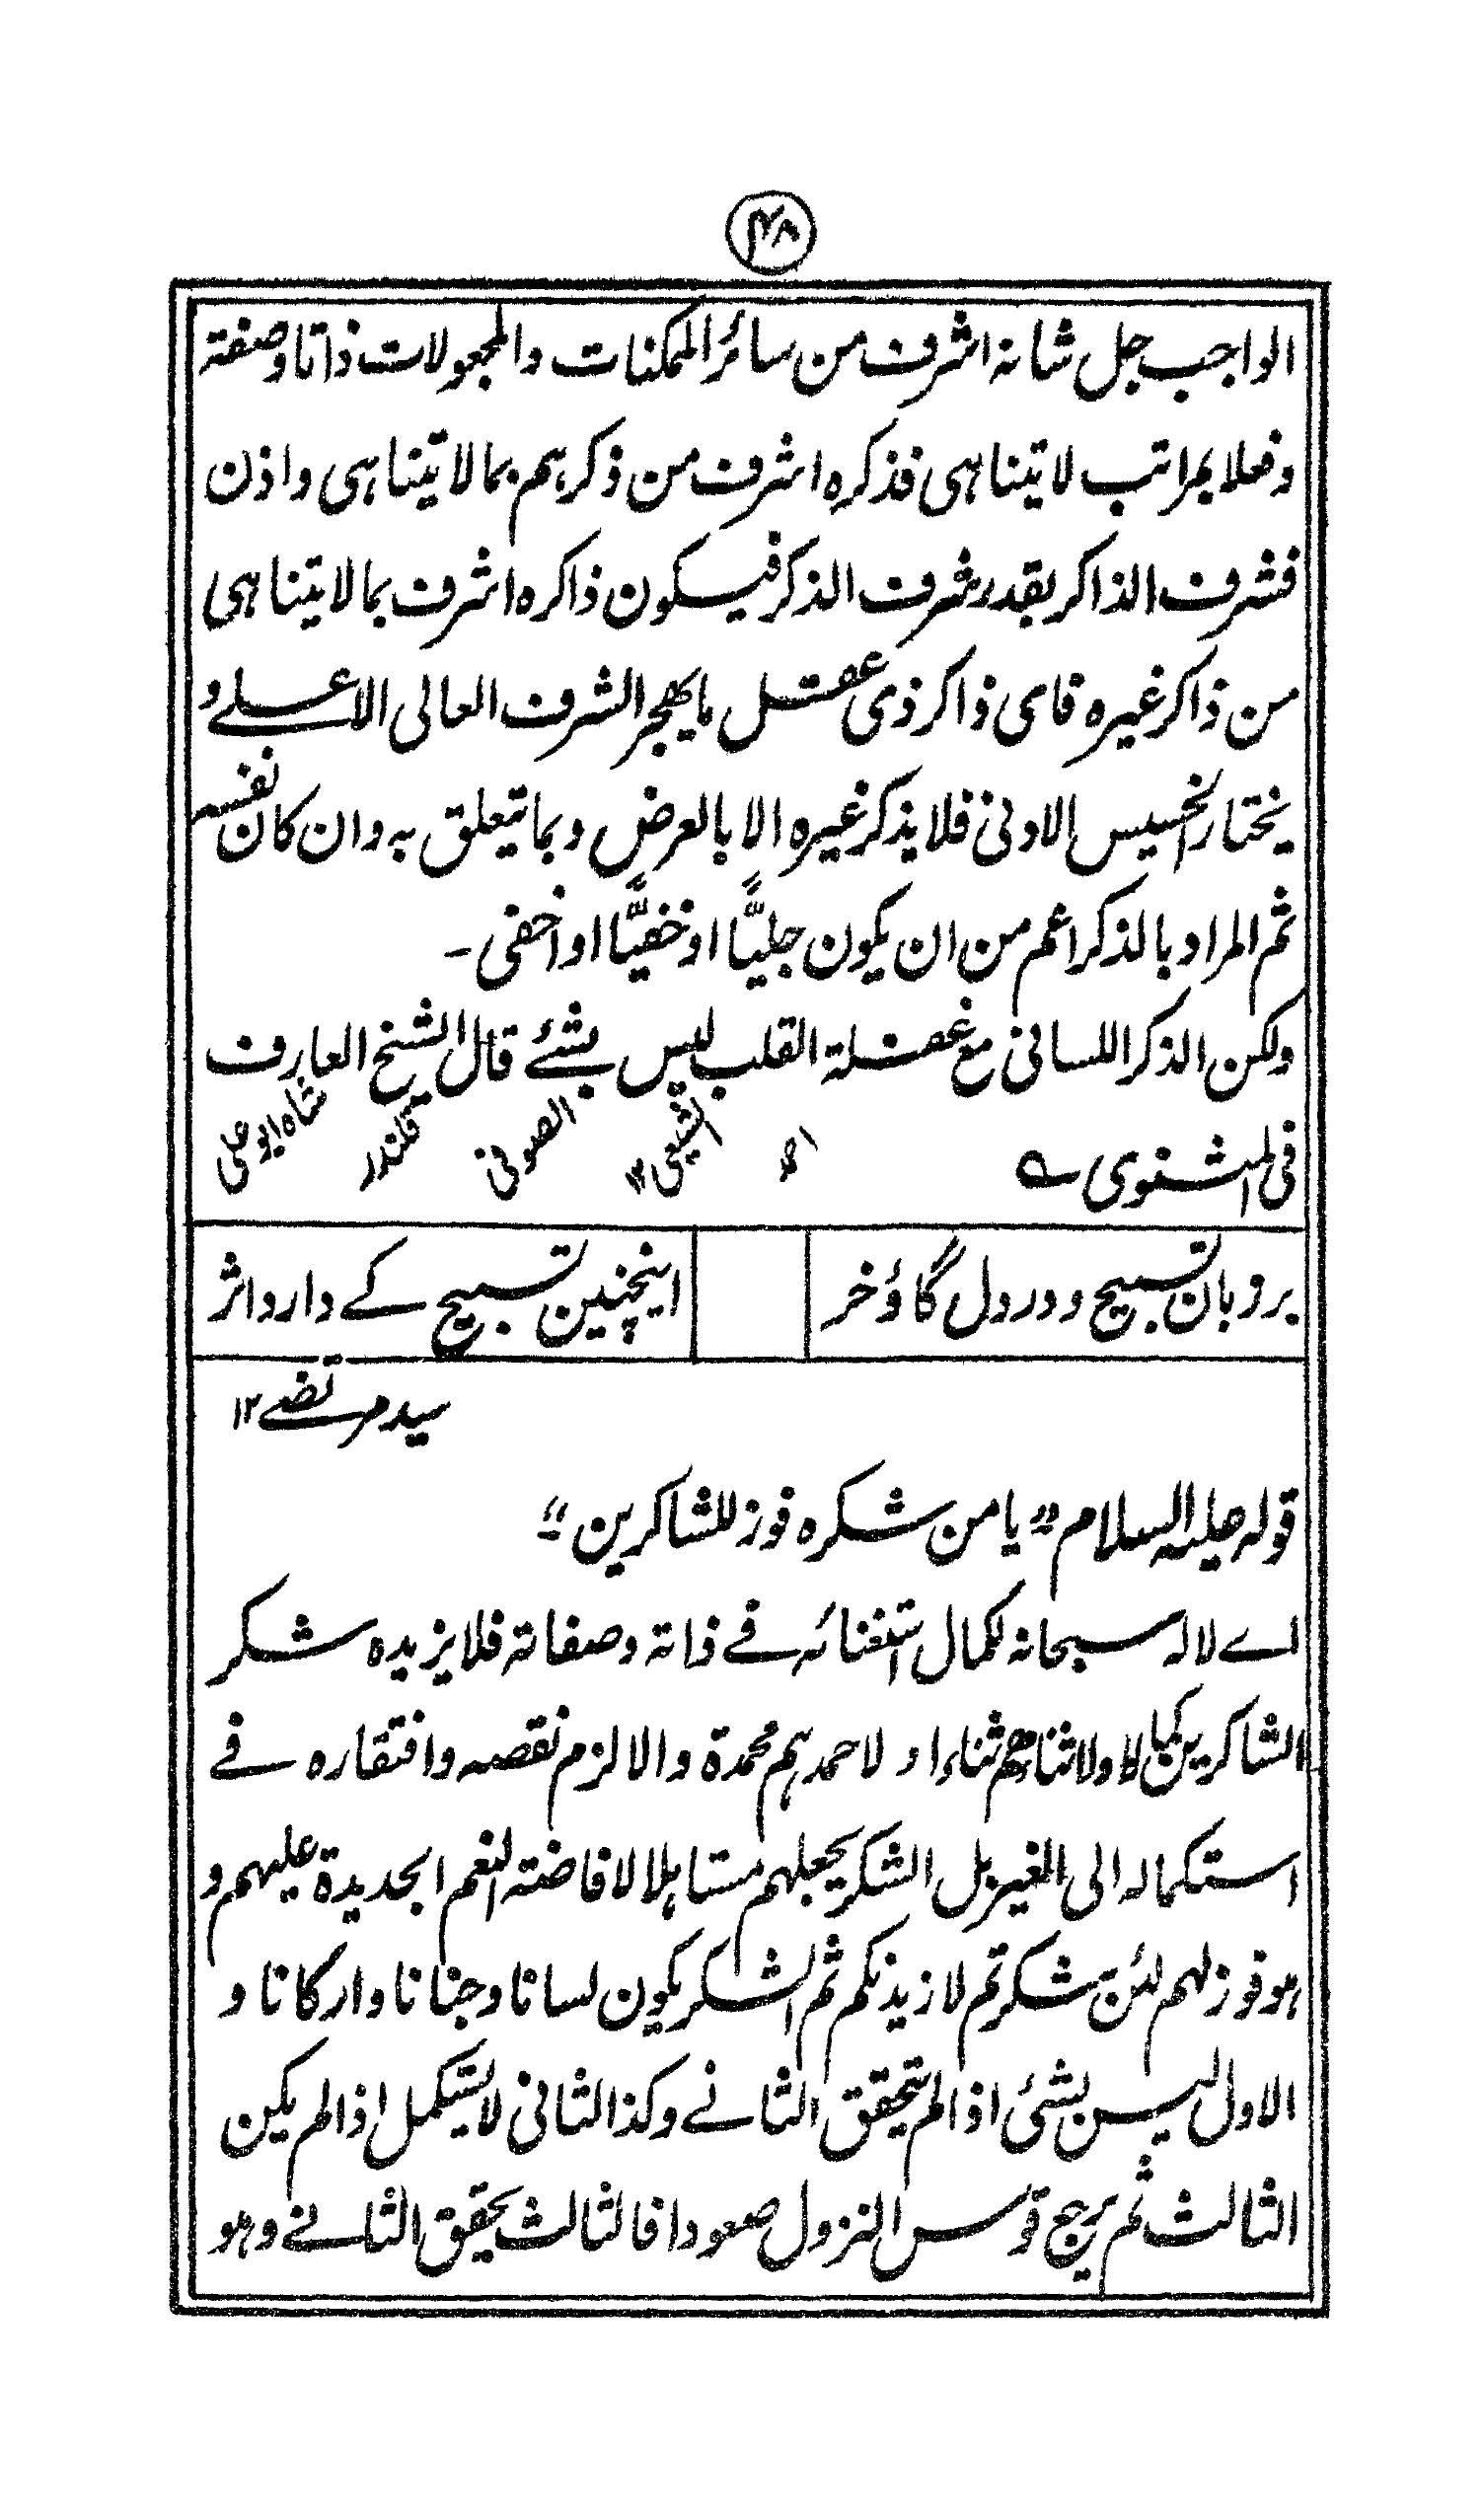 ۴۸
الواجب جل شانہ اشرف من سائر الممکنات والمجعولات ذاتا وصفتہ
وفعلا بمراتب لا یتناہی فذکرہ اشرف من ذکرہم بما لا یتناہی واذن
فشرف الذاکر بقدر شرف الذکر فیسکون ذاکرہ اشرف بما لا یتناہی
من ذاکر غیرہ فای ذاکر ذی عقل ما یھجر الشرف العالی الاعلے و
یختار الخسیس الادنی فلا یذکر غیرہ الا بالعرض وبما یتعلق بہ وان کان نفسہ
ثم المراد بالذکر اعم من ان یکون جلیًّا او خفیًّا او اخفی ۔
ولکن الذکر اللسانی مع غفلۃ القلب لیس بشئے قال الشیخ العارف
شاہ ابو علی قلندر الصوفی الشیعی ۱۲
فی المثنوی ؎
بر زبان تسبیح و در دل گاؤ خر
اینچنین تسبیح کے دارد اثر
سید مرتضے ۱۲
قولہ علیہ السلام "یا من شکرہ فوز للشاکرین"۔
اے لالہ سبحانہ لکمال استغنائہ فے ذاتہ وصفاتہ فلا یزیدہ شکر
الشاکرین کمالا ولا ثناءہم ثناء او لا حمدہم محمدۃ والا لزم نقصہ وافتقارہ فے
استکمالہ الی الغیر بل الشکر یجعلہم مستاہلا لافاضتہ النعم الجدیدۃ علیہم و
ہو فوز لہم لئن شکرتم لازیدنکم ثم الشکر یکون لسانا وجنانا وارکانا و
الاول لیس بشئ اذا لم یتحقق الثانے وکذا الثانی لا یستکمل اذا لم یکن
الثالث ثم یرجع قوس النزول صعودا فالثالث یحقق الثانے وہو